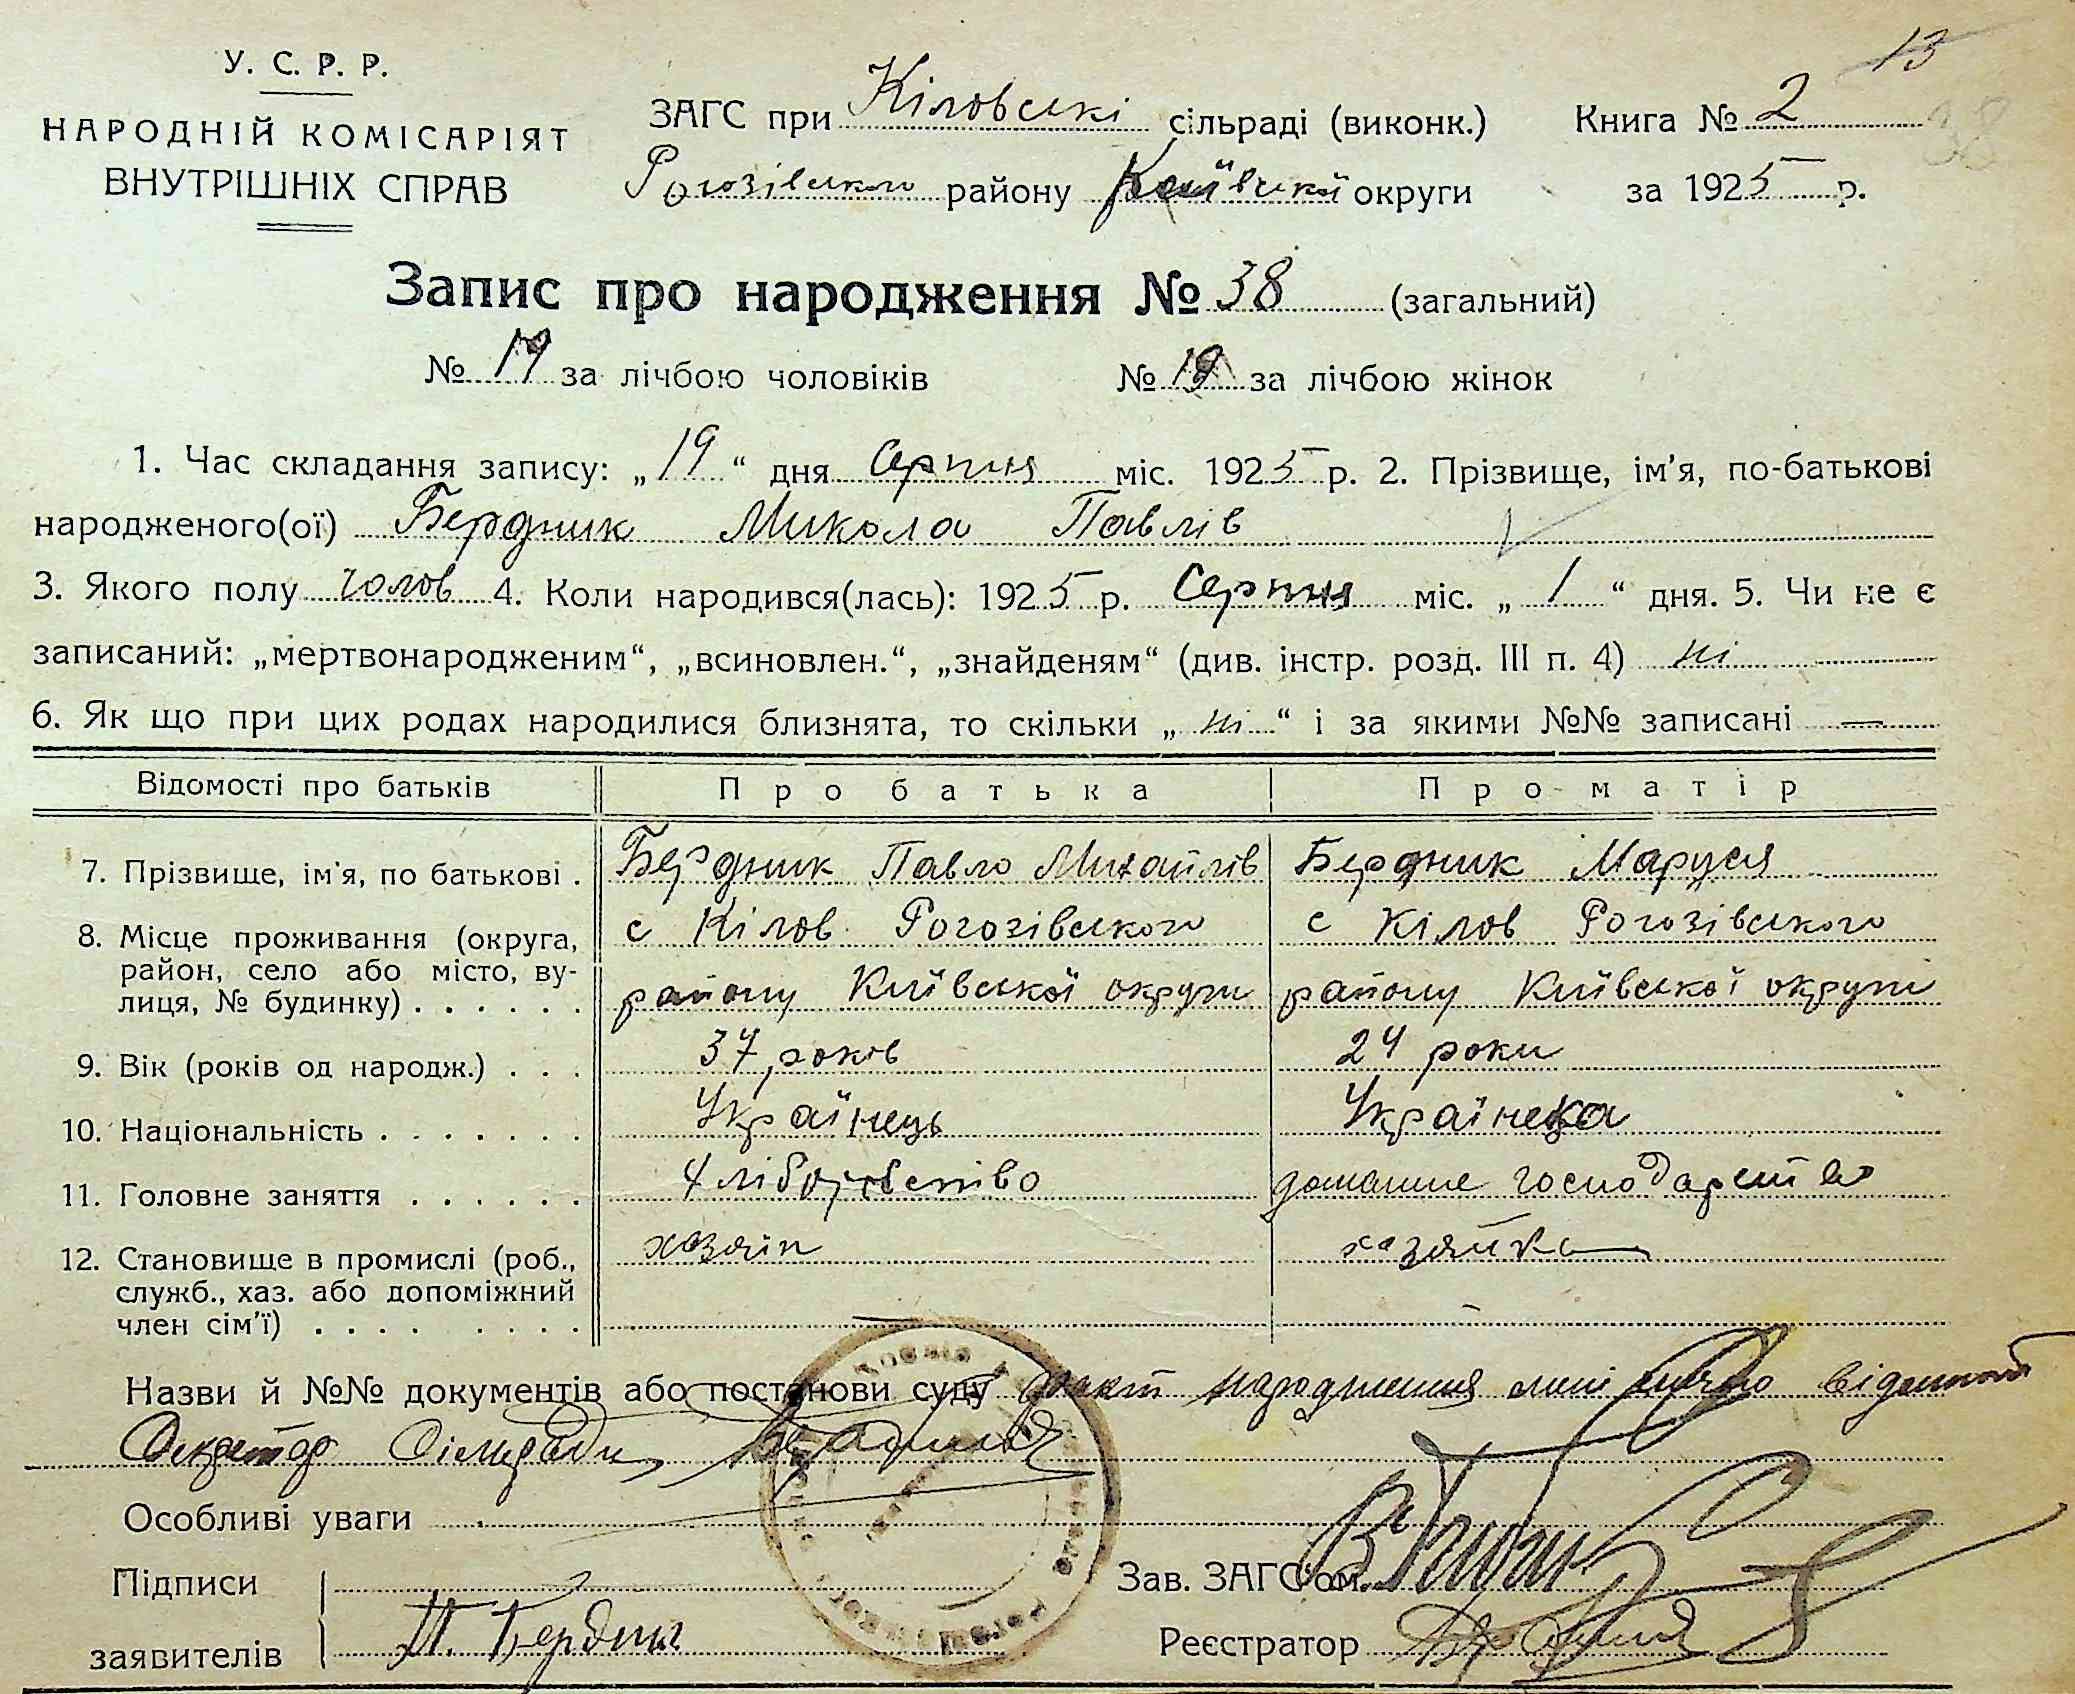 13
У. С. Р. Р.
НАРОДНІЙ КОМІСАРІЯТ
ВНУТРІШНІХ СПРАВ
ЗАГС при Кіловські сільраді (виконк.) Книга № 2
38
Рогозівського району Київської округи за 1925 р.
Запис про народження № 38 (загальний)
№ 19 за лічбою чоловіків № 19 за лічбою жінок
1. Час складання запису: „19“ дня Серпня міс. 1925 р. 2. Прізвище, ім'я, по-батькові
народженого(ої) Бердник Микола Павлів
3. Якого полу чолов 4. Коли народився(лась): 1925 р. Серпня міс. „1“ дня. 5. Чи не є
записаний: „мертвонародженим“, „всиновлен.“, „знайденям“ (див. інстр. розд. III п. 4) ні
6. Як що при цих родах народилися близнята, то скільки „ні“ і за якими №№ записані —
Відомості про батьків Про батька Про матір
7. Прізвище, ім'я, по батькові . Бердник Павло Михайлів Бердник Маруся
8. Місце проживання (округа, с Кілов Рогозівського с Кілов Рогозівського
район, село або місто, ву-
лиця, № будинку) . . . . . . району Київської округи району Київської округи
9. Вік (років од народж.) . . . 37 років 24 роки
10. Національність . . . . . . . Українець Українка
11. Головне заняття . . . . . . хліборобство домашнє господарство
12. Становище в промислі (роб., хазяїн хазяйка
служб., хаз. або допоміжний
член сім'ї) . . . . . . . .
Назви й №№ документів або постанови суду факт народження мені відомий
Секретар Сільради
Особливі уваги
Підписи Зав. ЗАГС'ом.
заявителів П. Бердник Реєстратор